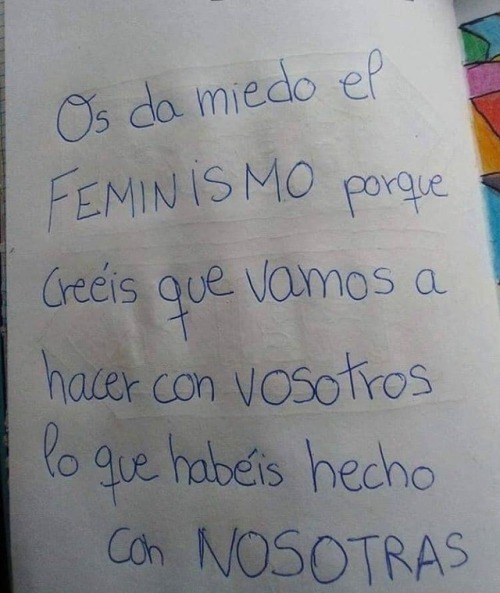 Os da miedo el
FEMINISMO porque
Creéis que vamos a
hacer con vosotros
lo que habéis hecho
con NOSOTRAS